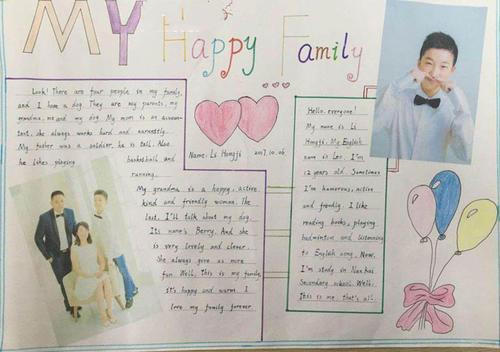 MY Happy Family
Look! There are four people in my family,
and I have a dog. They are my parents, my
grandma, me and my dog. My mom is an accoun-
tant, she always works hard and earnestly.
My father was a soldier, he is tall. Also
he likes playing basketball and
running.
My grandma is a happy, active,
kind and friendly woman. The
last, I'll talk about my dog.
Its name's Berry. And she
is very lovely and clever.
She always give us more
fun. Well, this is my family,
it's happy and warm. I
love my family forever.
Name: Li Hongji 2017.10.06
Hello, everyone!
My name is Li
Hongji. My English
name is Leo. I'm
12 years old. Sometimes
I'm humorous, active
and frendly. I like
reading books, playing
badminton and listenning
to English song. Now,
I'm study in Nanhai
Secondary school. Well.
This is me, that's all.